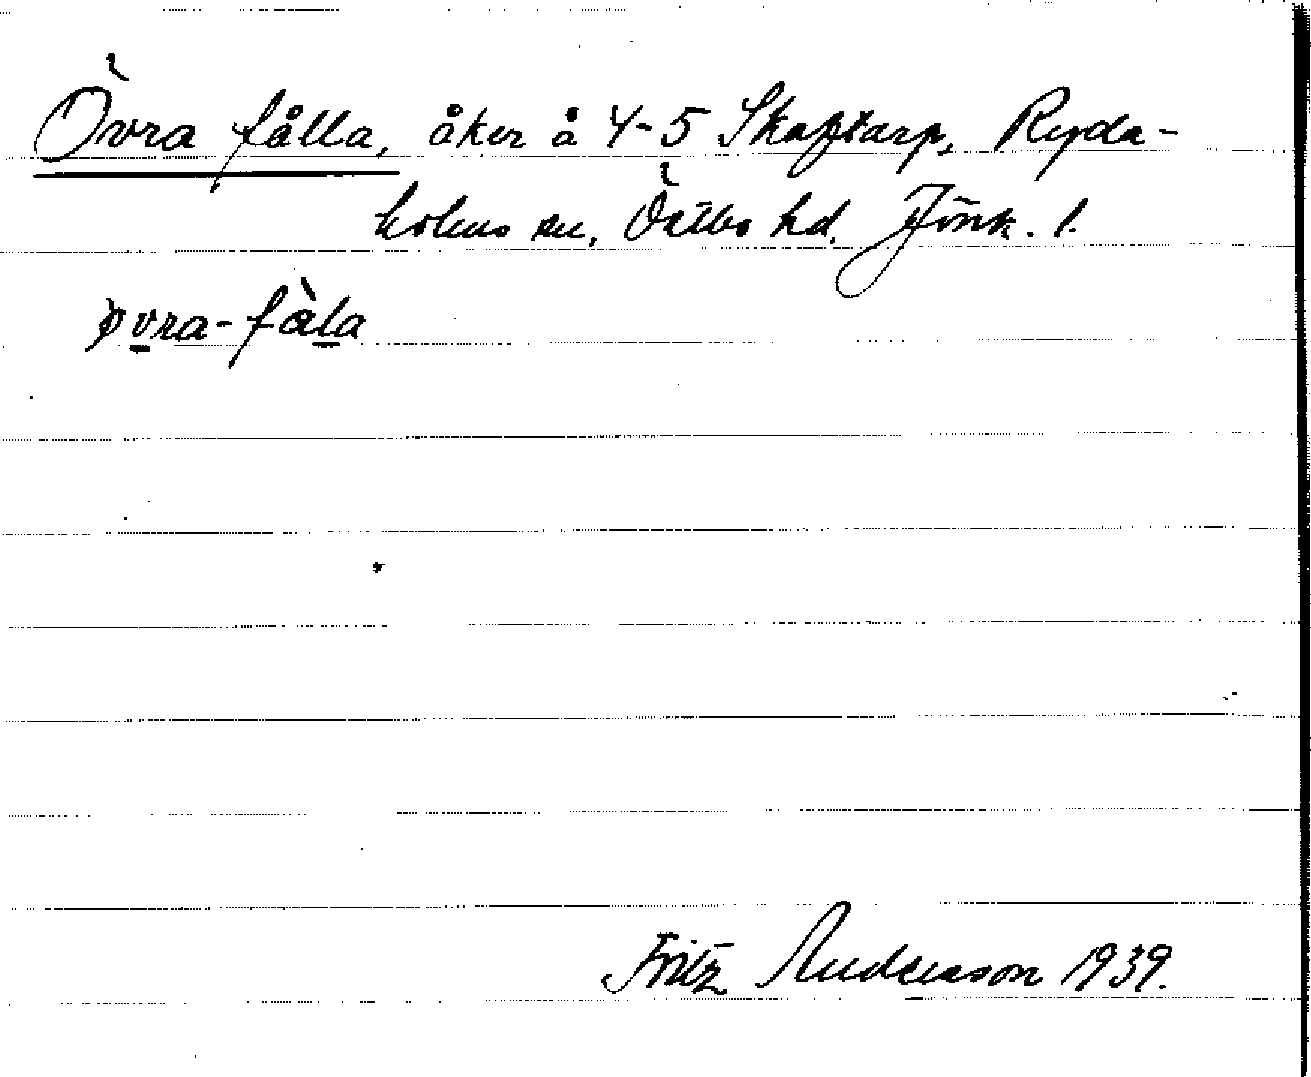 Övra fålla, åker å 4-5 Skaftarp, Ryda-
holms sn, Östbo hd. Jönk. l.
øvra-fåla
Fritz Andersson 1939.